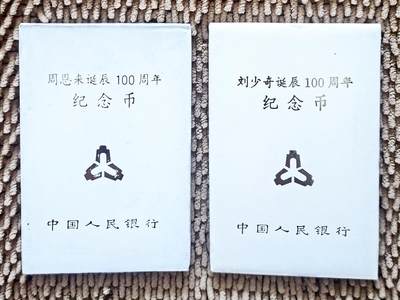 周恩来诞辰100周年
纪念币
中国人民银行
刘少奇诞辰100周年
纪念币
中国人民银行